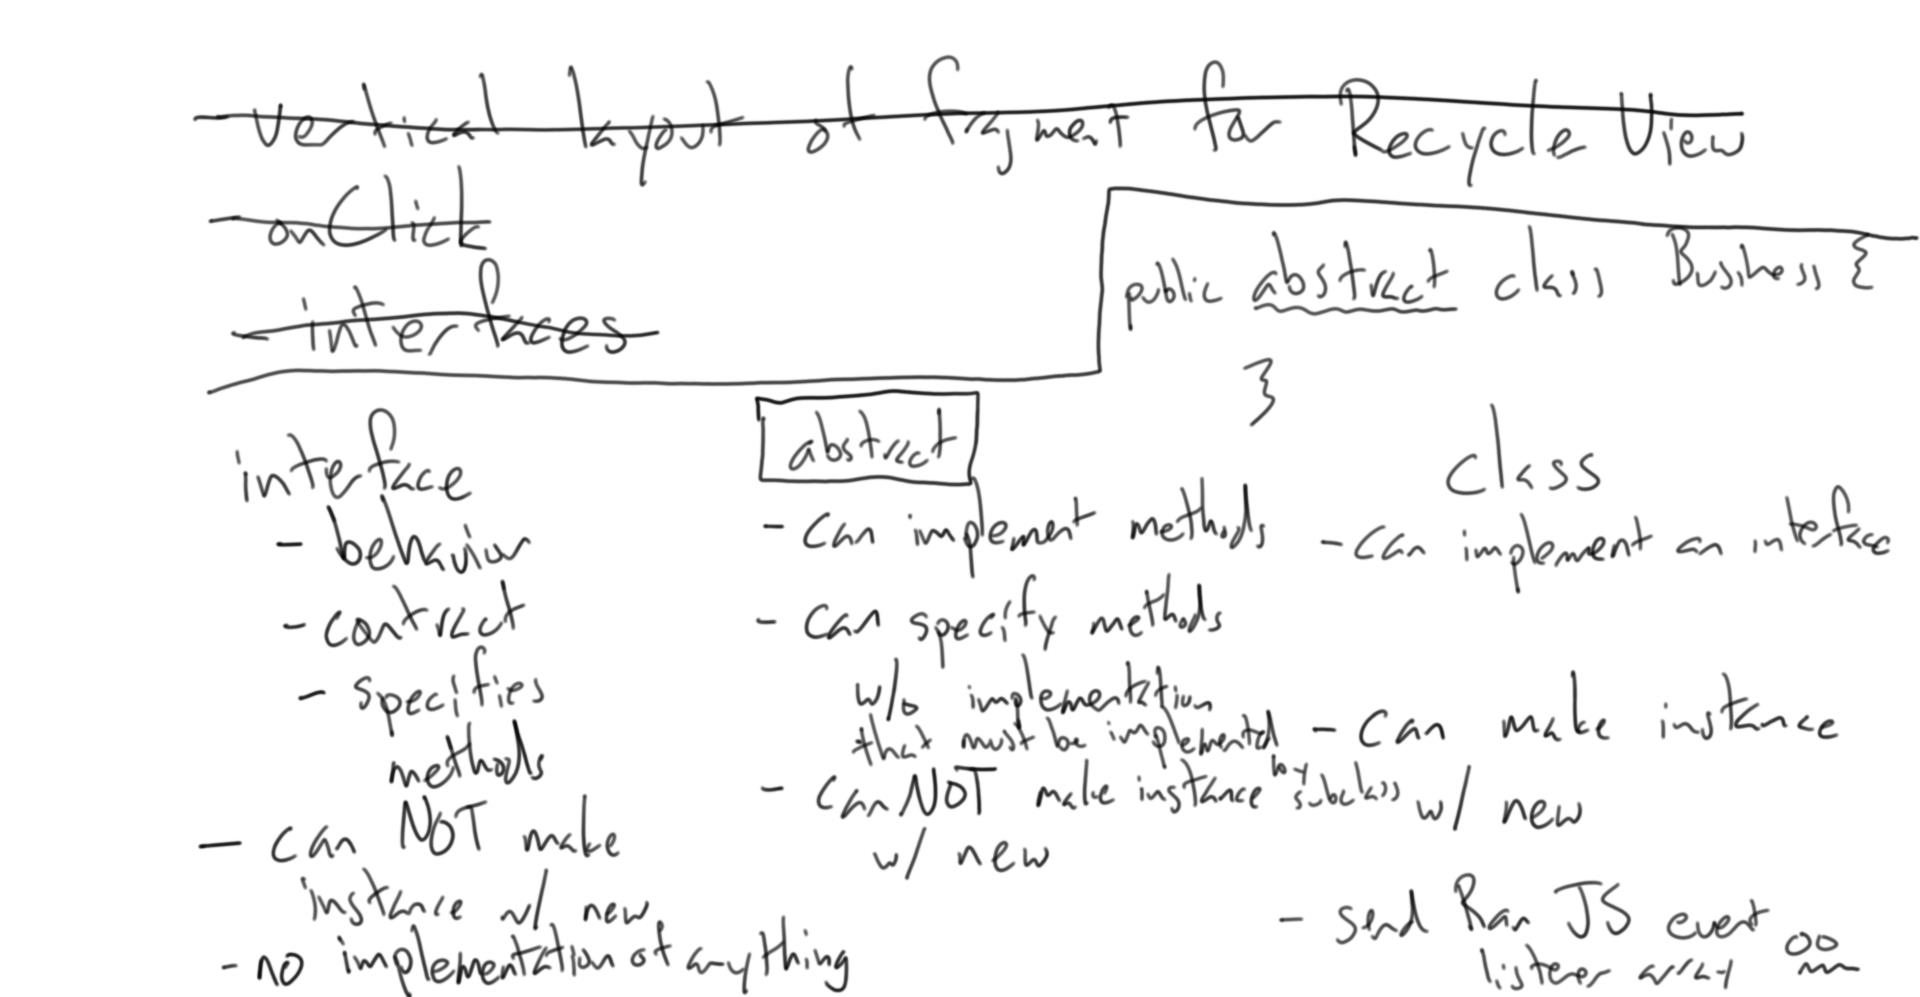 - Vertical layout of fragment for Recycle View
- onClick
- interfaces
public abstract class Business {
}
interface
- behavior
- contract
- specifies
methods
- can NOT make
instance w/ new
- no implementation of anything
abstract
- can implement methods
- can specify methods
w/o implementation
that must be implemented
by subclass
- can NOT make instance
w/ new
class
- can implement an inteface
- can make instance
w/ new
- send Ran JS event
listener array